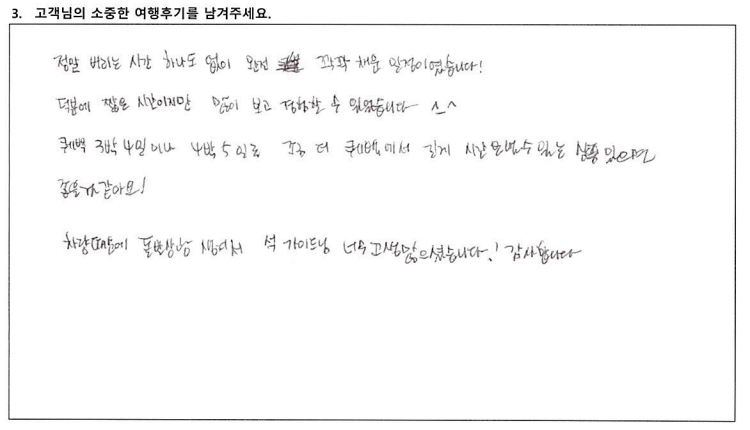 3. 고객님의 소중한 여행후기를 남겨주세요.
정말 버리는 시간 하나도 없이 완전 꽉꽉 채운 일정이였습니다!
덕분에 짧은 시간이지만 많이 보고 경험할 수 있었습니다 ^_^
퀘백 3박4일이나 4박5일로 조금 더 퀘백에서 길게 시간보낼수 있는 상품 있으면
좋을거 같아요!
차량때문에 돌발상황 생겨서 석 가이드님 너무 고생많으셨습니다! 감사합니다